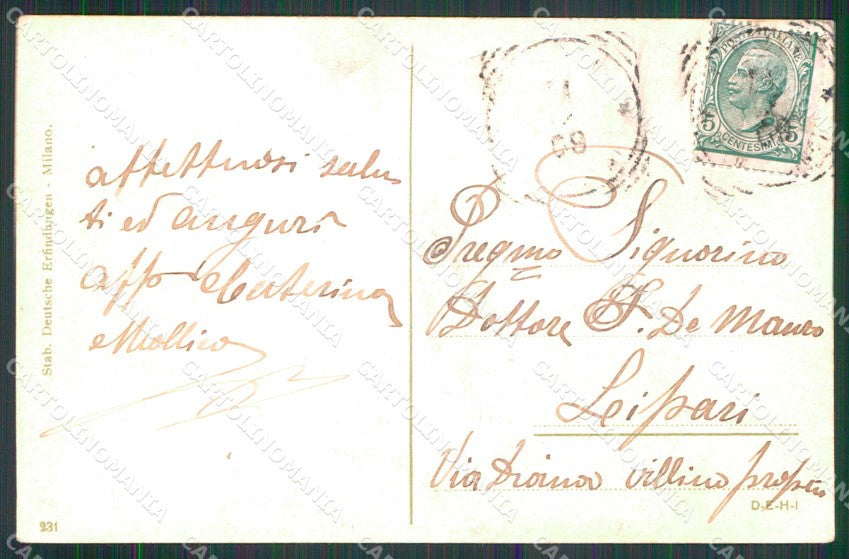 affettuosi salu
ti ed auguri
aff Caterina
Mollica
Stab. Deutsche Erfindungen - Milano.
231
POSTE ITALIANE
5 5
CENTESIMI
09
Pregmo Signorino
Dottore F. De Mauro
Leipari
Via Diana villino proprio
D-E-H-I
CARTOLINOMANIA